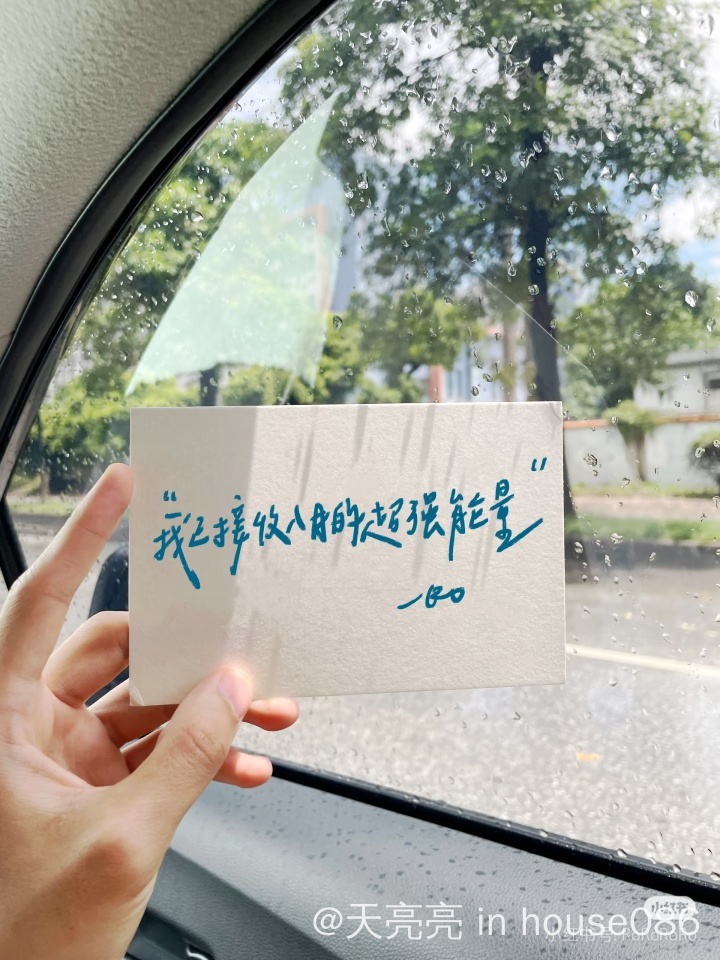 “我已接收八月的超强能量”
@天亮亮 in house086
小红书